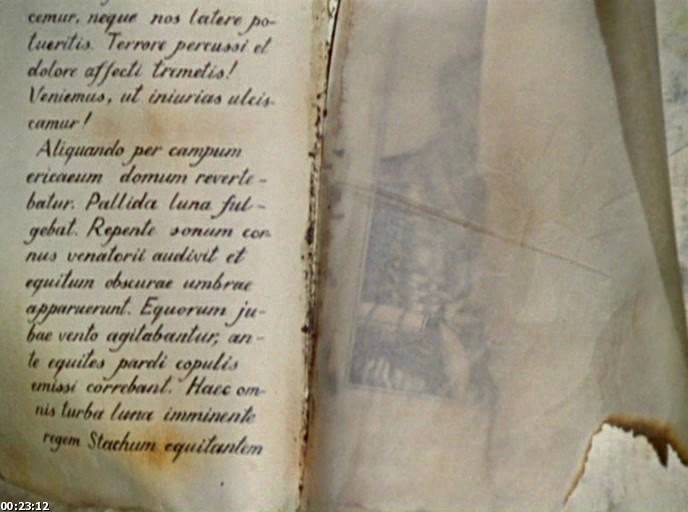 cemur, neque nos latere po-
tueritis. Terrore percussi et
dolore affecti tremetis!
Veniemus, ut iniurias ulcis-
camur!
Aliquando per campum
ericaeum domum reverte-
batur. Pallida luna ful-
gebat. Repente sonum cor-
nus venatorii audivit et
equitum obscurae umbrae
apparuerunt. Equorum ju-
bae vento agitabantur, an-
te equites pardi copulis
emissi correbant. Haec om-
nis turba luna imminente
regem Stachum equitantem
00:23:12